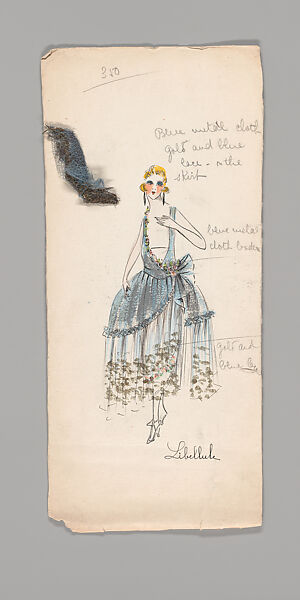 350
Blue metal cloth
gold and blue
lace - on the
skirt
blue metal
cloth bodice
gold and
blue lace
Libellule